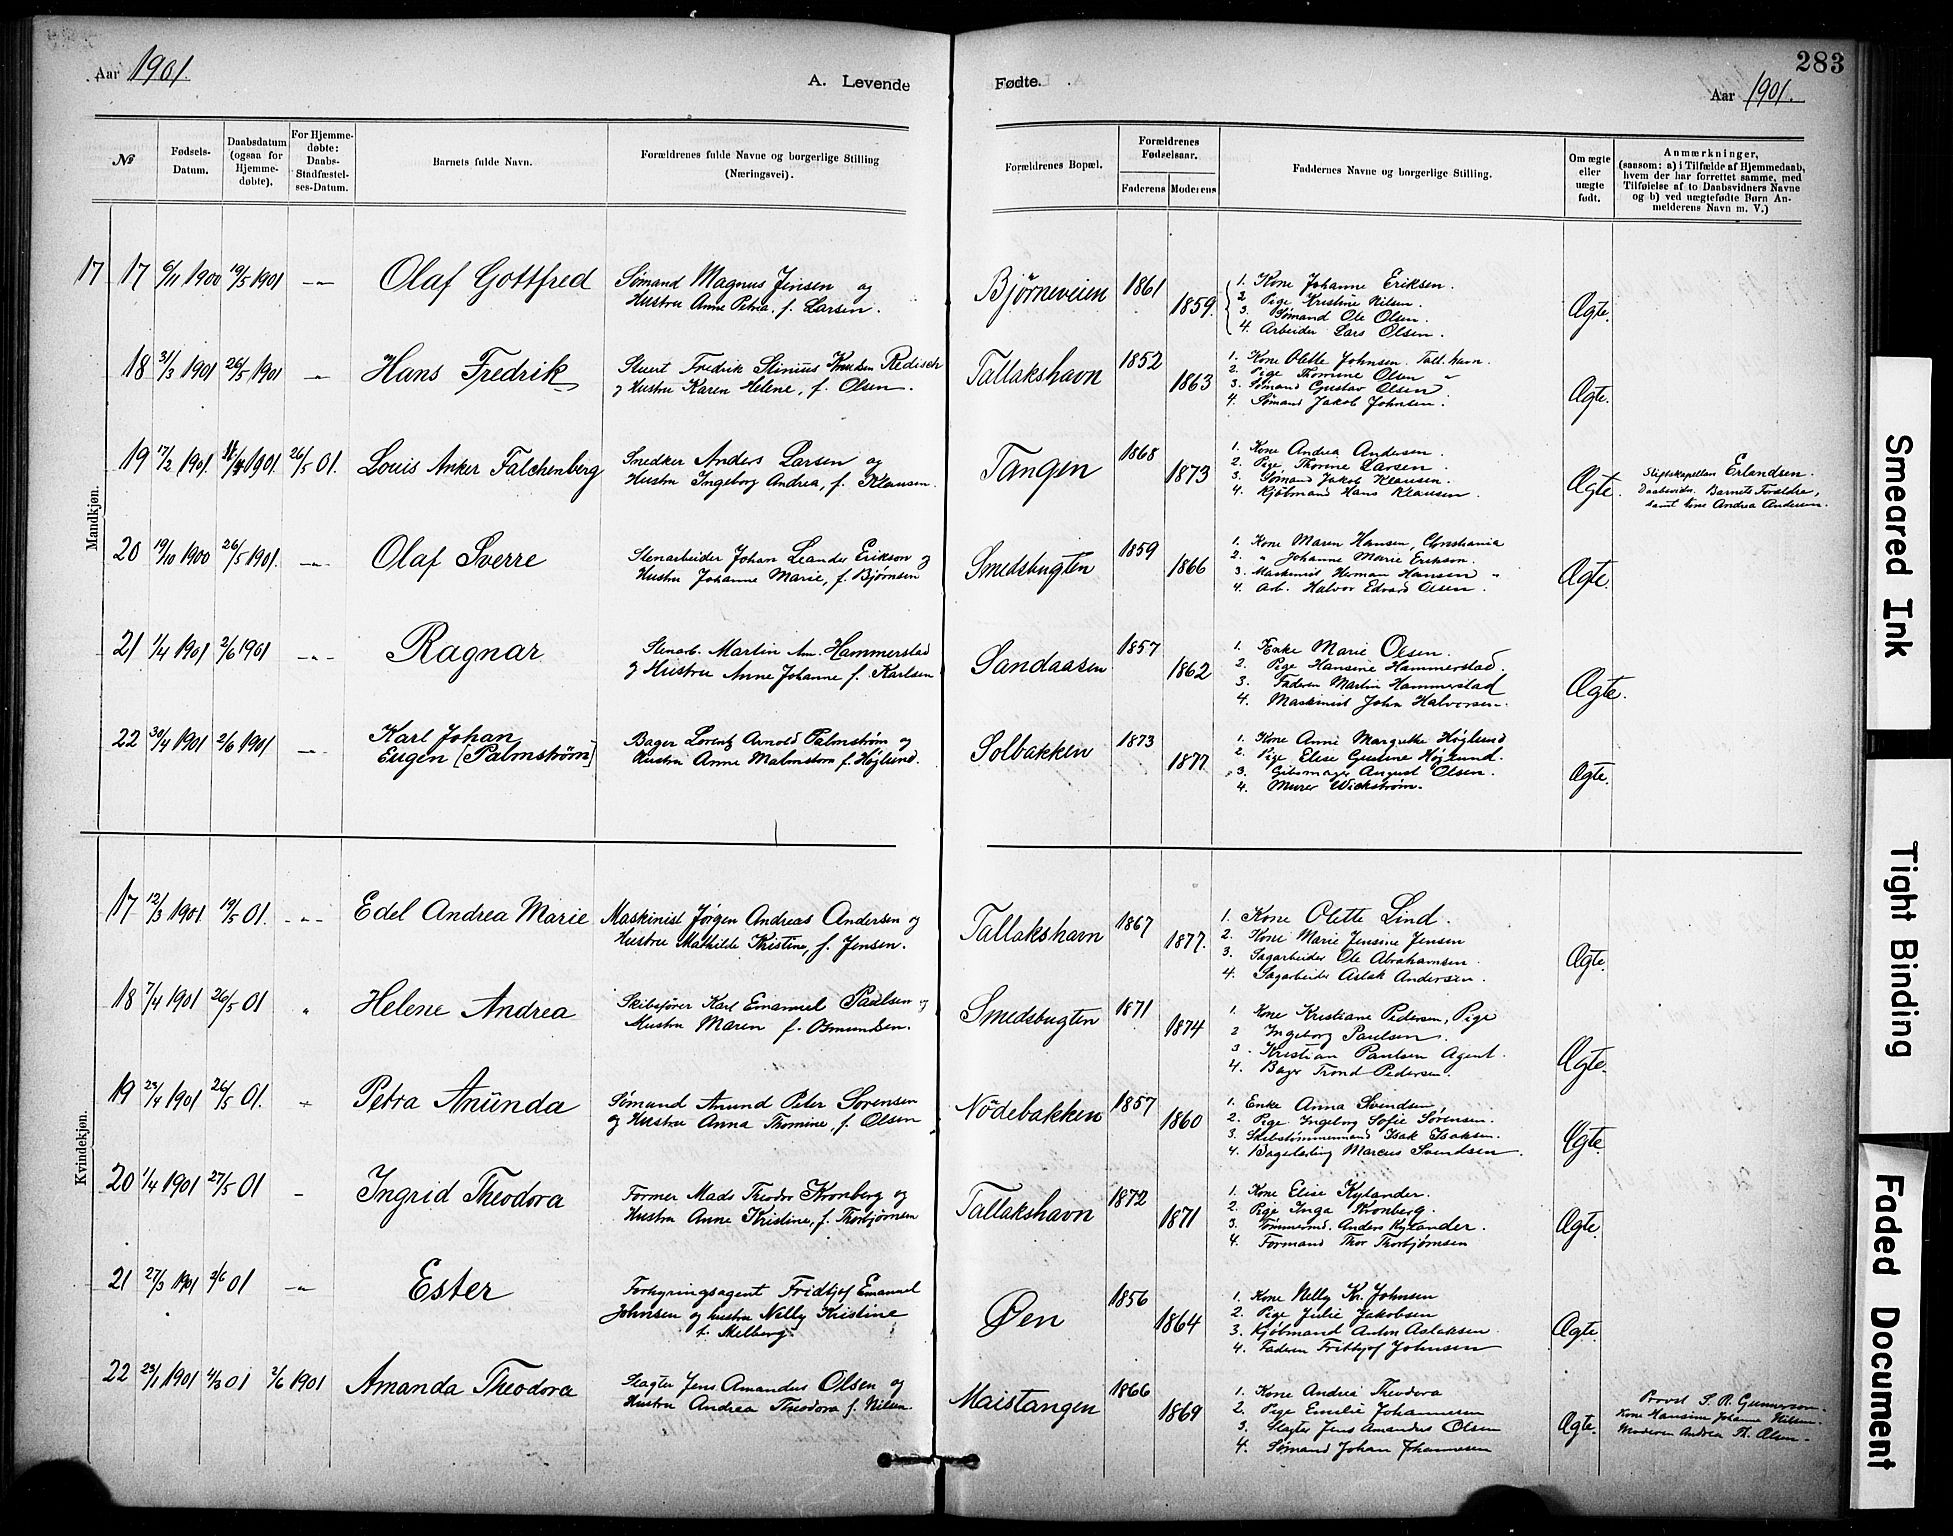 Aar 1901.
A. Levende
Fødte.
283
Aar 1901.
№
Fødsels-Datum.
Daabsdatum (ogsaa for Hjemme-døbte).
For Hjemme-døbte: Daabs-Stadfæstel-ses-Datum.
Barnets fulde Navn.
Forældrenes fulde Navne og borgerlige Stilling (Næringsvei).
Forældrenes Bopæl.
Forældrenes Fødselsaar.
Faderens
Moderens
Faddernes Navne og borgerlige Stilling.
Om ægte eller uægte født.
Anmærkninger,
(saasom: a) i Tilfælde af Hjemmedaab,
hvem der har forrettet samme, med
Tilføielse af to Daabsvidners Navne
og b) ved uægtefødte Børn An-
melderens Navn m. V.)
Mandkjøn.
17 17 6/11 1900 19/5 1901 -„- Olaf Gottfred
Sømand Magnus Jensen og
Hustru Anne Petrea. f. Larsen.
Bjørneveien 1861 1859.
1. Kone Johanne Eriksen.
2. Pige Kristine Nilsen.
3. Sømand Ole Olsen.
4. Arbeider Lars Olsen.
Ægte.
18 31/3 1901 26/5 1901 -„- Hans Fredrik
Stuert Fredrik Stinius Knudsen Redisch
og Hustru Karen Helene, f. Olsen.
Tallakshavn 1852 1863
1. Kone Olette Johnsen. Tall. havn.
2. Pige Thomine Olsen „
3. Sømand Gustav Olsen
4. Sømand Jakob Johnsen.
Ægte.
19 17/2 1901. 1901. 26/5 01. Louis Anker Falchenberg
Snedker Anders Larsen og
Hustru Ingeborg Andrea, f. Klausen.
Tangen 1868 1873
1. Kone Andrea Andersen.
2. Pige Thorine Larsen.
3. Sømand Jakob Klausen.
4. Kjøbmand Hans Klausen.
Ægte.
Stiftskapellan Erlandsen.
Daabsvidn. Barnets Forældre,
samt kone Andrea Andersen.
20 19/10 1900 26/5 1901. -„- Olaf Sverre
Stenarbeider Johan Leander Erikson og
Hustru Johanne Marie, f. Bjørnsen
Smedsbugten 1859 1866
1. Kone Maren Hansen, Christiania
2. „ Johanne Marie Erikson.
3. Maskinist Herman Hansen „
4. Arb. Halvor Edvard Olsen.
Ægte.
21 1/4 1901 2/6 1901 -„- Ragnar
Stenarb. Martin Am. Hammerstad
og Hustru Anne Johanne f. Karlsen
Sandaasen 1857 1862
1. Enke Marie Olsen.
2. Pige Hansine Hammerstad.
3. Faderen Martin Hammerstad
4. Maskinist John Halvorsen.
Ægte.
22 30/4 1901 2/6 1901 -„- Karl Johan
Eugen [Palmstrøm]
Bager Lorentz Arnold Palmstrøm og
Hustru Anne Malmstora f. Høglund.
Solbakken 1873 1877
1. Kone Anne Margrethe Høglund
2. Pige Elise Gustine Høglund.
3. Gibsmager August Olsen.
4. Murer Wickstrøm.
Ægte.
Kvindekjøn.
17 12/3 1901 19/5 01. -„- Edel Andrea Marie
Maskinist Jørgen Andreas Andersen og
Hustru Mathilde Kristine, f. Jensen.
Tallakshavn 1867 1877.
1. Kone Olette Lind.
2. Kone Marie Jensine Jensen
3. Sagarbeider Ole Abrahamsen.
4. Sagarbeider Aslak Andersen.
Ægte.
18 7/4 1901 26/5 01 „ Helene Andrea
Skibsfører Karl Emanuel Paulsen og
Hustru Maren f. Osmundsen.
Smedsbugten 1871 1874
1. Kone Kristiane Pedersen, Pige
2 Ingeborg Paulsen.
3. Kristian Paulsen Agent.
4. Bager Trond Pedersen.
Ægte.
19 23/4 1901 26/5 01. Petra Anünda
Sømand Anund Peter Sørensen
og Hustru Anna Thomine, f. Olsen
Nødebakken 1857 1860
1. Enke Anna Svendsen
2. Pige Ingeborg Sofie Sørensen.
3. Skibstømmermand Isak Isaksen.
4. Bagerlærling Marcus Svendsen.
Ægte.
20 1/4 1901 27/5 01 - Ingrid Theodora
Former Mads Theodor Kronberg og
Hustru Anne Kristine, f. Thorbjørnsen
Tallakshavn 1872 1871
1. Kone Elise Kylander.
2. Pige Inga Kronberg.
3. Tømmermd. Anders Kylander.
4. Formand Thor Thorbjørnsen
Ægte.
21 27/3 1901 2/6 01 -„- Ester
Forhyringsagent Fridtjof Emanuel
Johnsen og hustru Nelly Kristine
f. Melberg.
Øen 1856 1864
1. Kone Nelly Kr. Johnsen
2. Pige Julie Jakobsen
3. Kjøbmand Anton Aslaksen.
4. Faderen Frithjof Johnsen
Ægte.
22 23/1 1901 4/3 01 2/6 1901 Amanda Theodora
Slagter Jens Amandus Olsen og
Hustru Andrea Theodora f. Nilsen.
Maistangen 1866 1869
1. Kone Andrea Theodora
2. Pige Emilie Johannesen
3. Slagter Jens Amandus Olsen
4. Sømand Johan Johannesen
Ægte.
Provst S. R. Gunnerson.
Kone Hansine Johanne Nilsen.
Moderen Andrea Th. Olsen.
Smeared Ink
Tight Binding
Faded Document